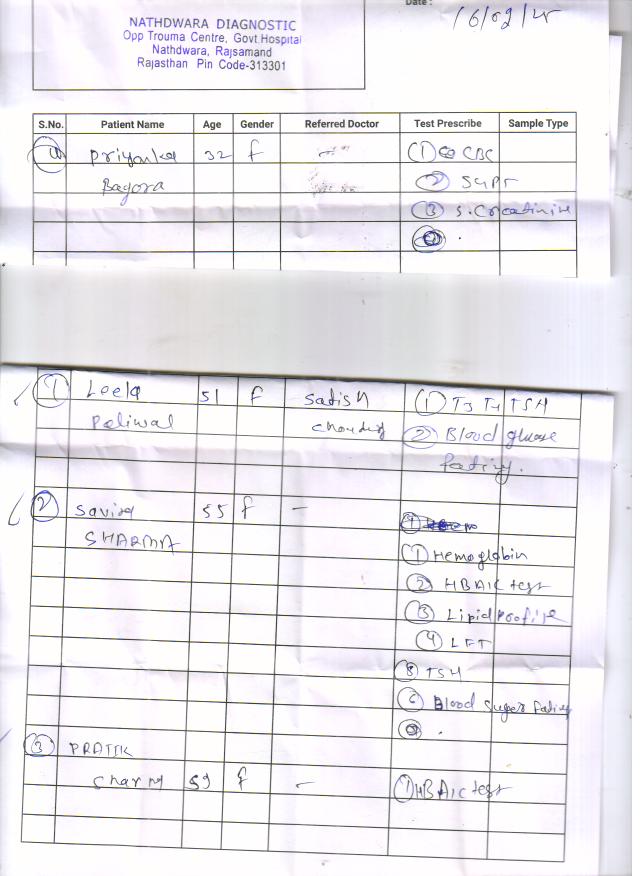 Date :
16/02/25
NATHDWARA DIAGNOSTIC
Opp Trouma Centre, Govt.Hospital
Nathdwara, Rajsamand
Rajasthan Pin Code-313301
S.No. Patient Name Age Gender Referred Doctor Test Prescribe Sample Type
(1) Priyanka 32 f - (1) CBC
Bagora (2) SGPT
(3) S. Creatinine
(1) Leela 51 f Satish (1) T3 T4 TSH
Paliwal (2) Blood glucose
fating.
(2) 55 f -
SHARMA (1) Hemoglobin
(2) HBA1C test
(3) Lipid Profile
(4) LFT
(5) TSH
(6) Blood Suger fating
(3) PRATIK
59 f - (1) HBA1C test